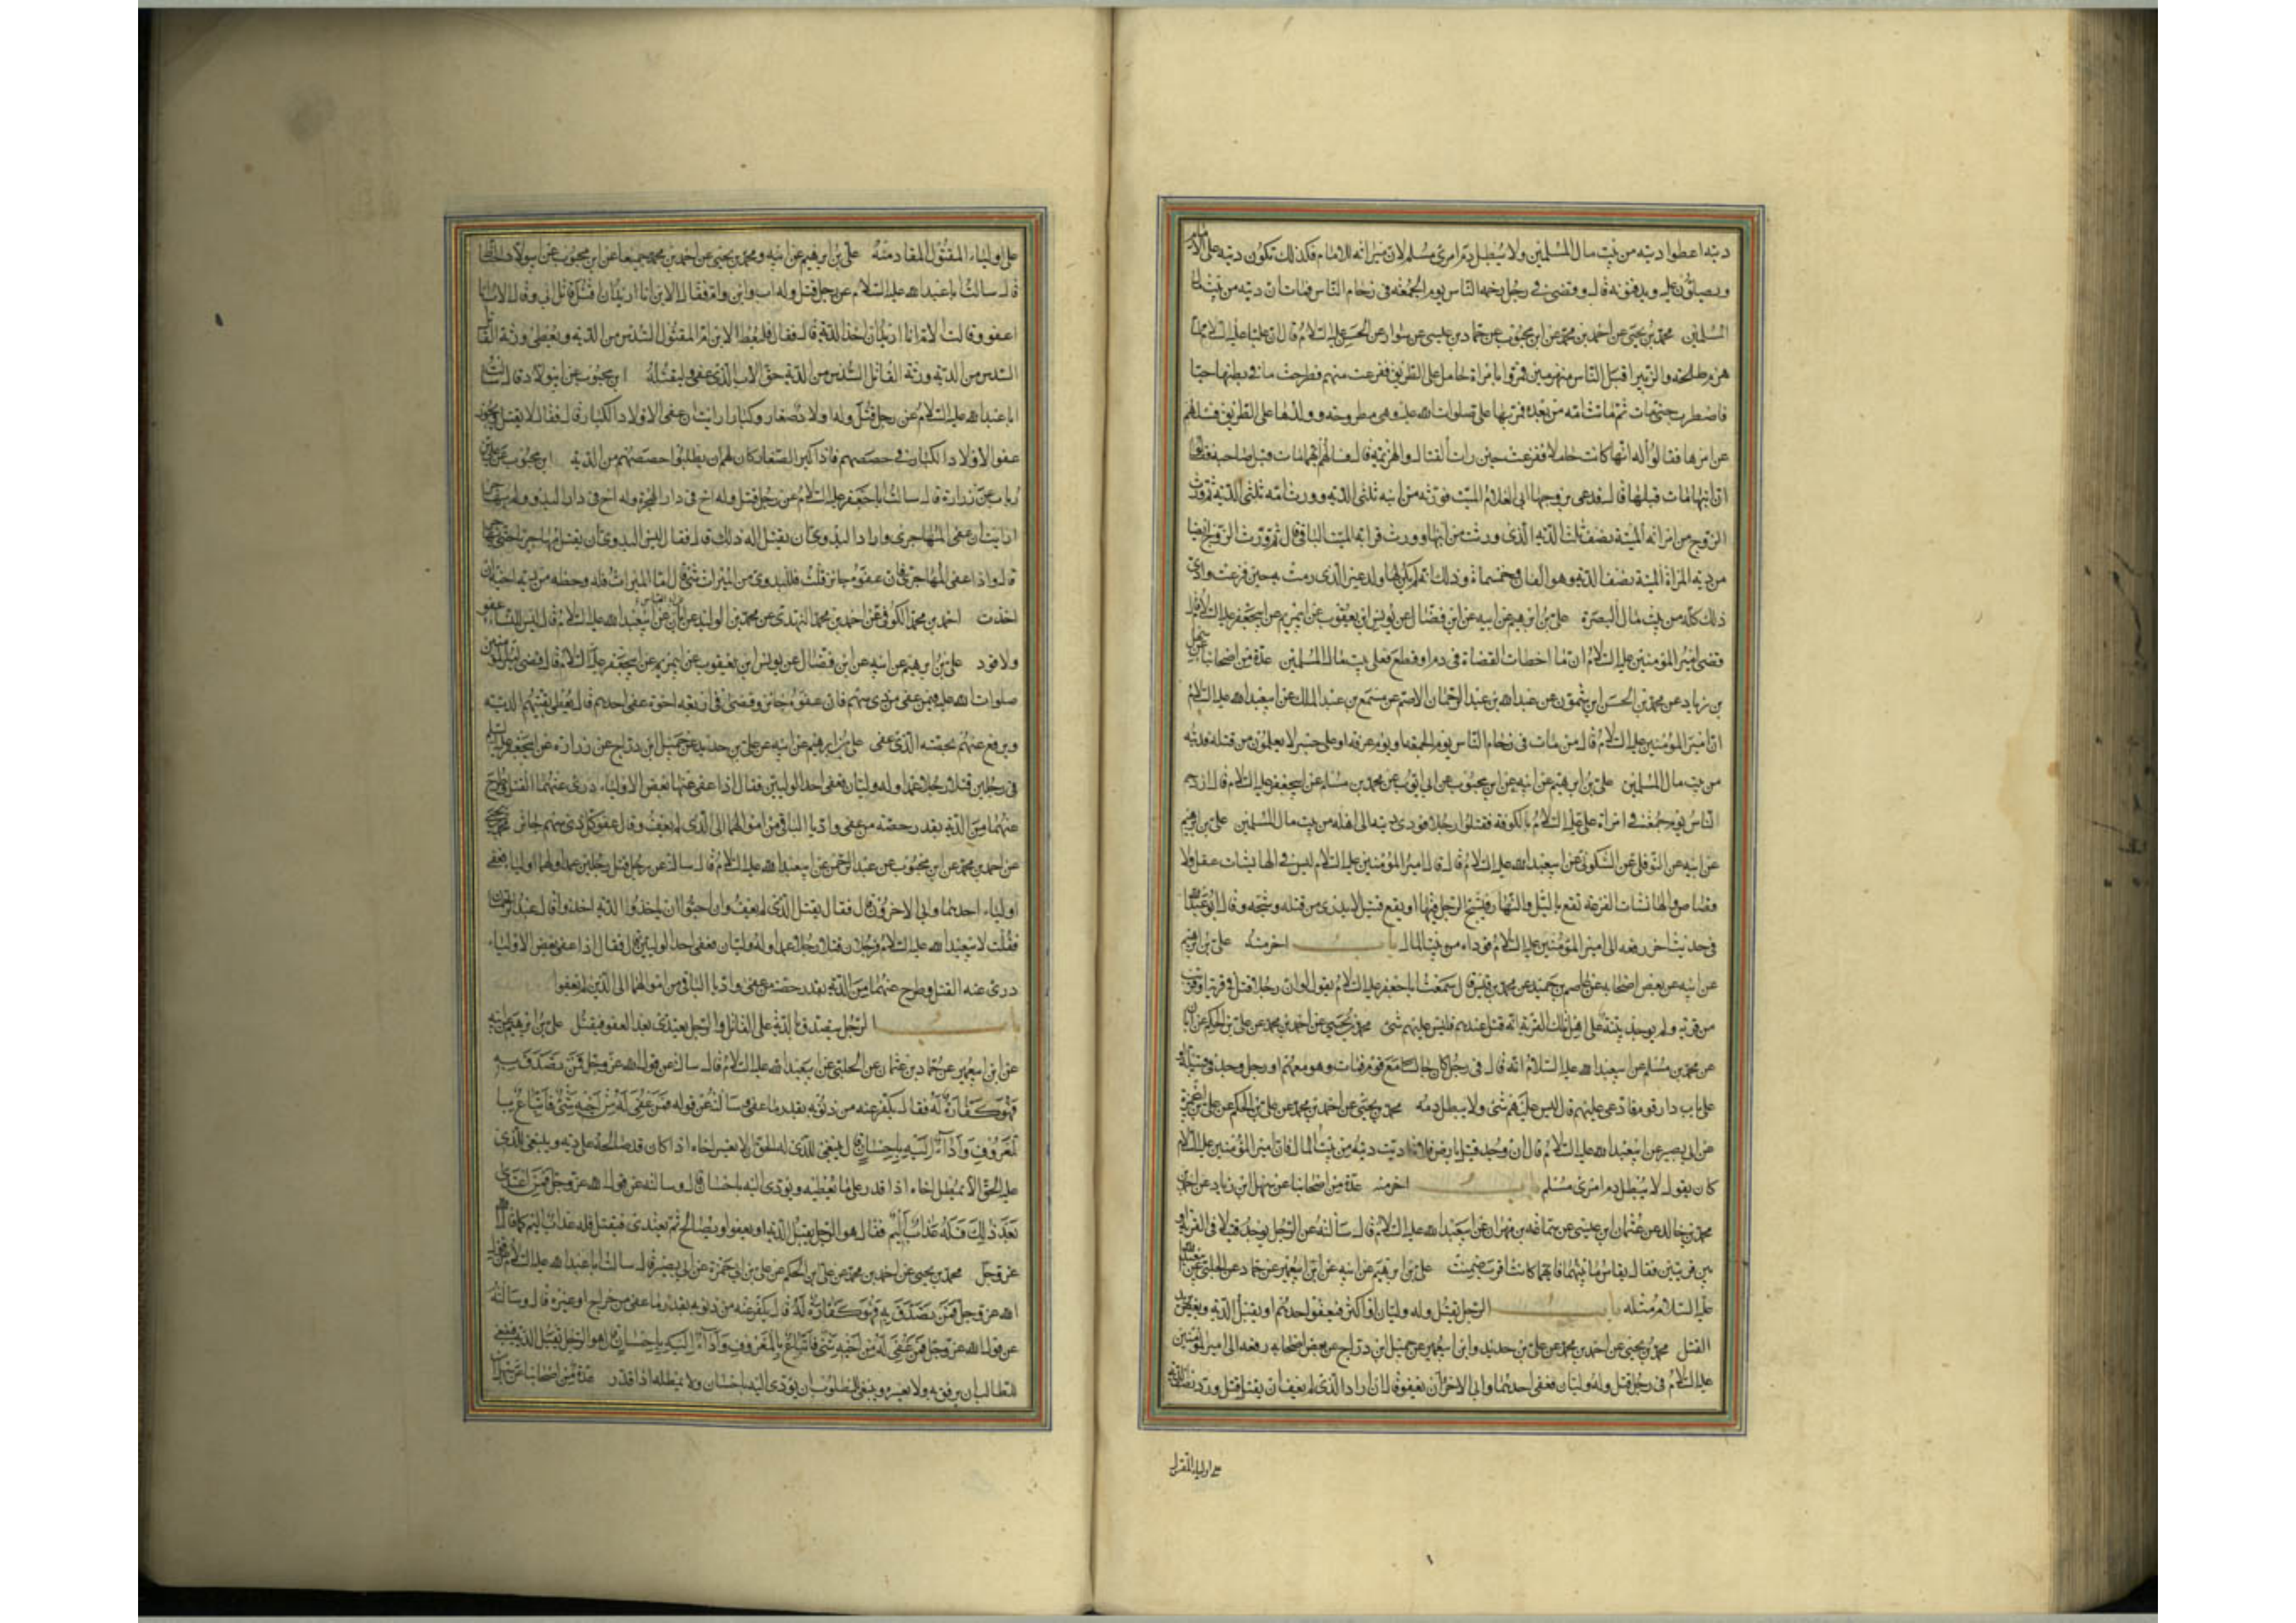 ديته اعطوا ديته من بيت مال المسلمين ولا يبطل دم امرئ مسلم لان ميراثه للامام فكذلك تكون ديته على الامام
ويصلون عليه ويدفنونه قال وقضى في رجل زحمه الناس يوم الجمعة في زحام الناس فمات ان ديته من بيت مال
المسلمين محمد بن يحيى عن احمد بن محمد عن ابن محبوب عن حماد بن عيسى عن سوار عن الحسن عليه السلام قال ان عليا عليه السلام لما
هزم طلحة والزبير اقبل الناس منهزمين فمروا بامراة حامل على الطريق ففزعت منهم فطرحت ما في بطنها حيا
فاضطرب حتى مات ثم ماتت امه من بعده فمر بها علي صلوات الله عليه وهي مطروحة وولدها على الطريق فسئلهم
عن امرها فقالوا له انها كانت حاملا ففزعت حين رات القتال والهزيمة قال فسالهم ايهما مات قبل صاحبه فقالوا
ان ابنها مات قبلها قال فدعى بزوجها ابي الغلام الميت فورثه من ابنه ثلثي الدية وورث امه ثلث الدية ثم ورث
الزوج من امراته الميتة نصف ثلث الدية الذي ورثته من ابنها وورث قرابة الميت الباقي قال ثم ورث الزوج ايضا
من دية المراة الميتة نصف الدية وهو الفان وخمسمائة وذلك انه لم يكن لها ولد غير الذي رمت به حين فزعت وادى
ذلك كله من بيت مال البصرة علي بن ابرهيم عن ابيه عن ابن فضال عن يونس ابن يعقوب عن ابي مريم عن ابي جعفر عليه السلام قال
قضى امير المؤمنين عليه السلام ان ما اخطات القضاة في دم او قطع فعلى بيت مال المسلمين عدة من اصحابنا عن سهل
بن زياد عن محمد بن الحسن ابن شمون عن عبدالله بن عبد الرحمان الاصم عن مسمع بن عبد الملك عن ابي عبد الله عليه السلام
ان امير المؤمنين عليه السلام قال من مات في زحام الناس يوم الجمعة او يوم عرفة او على جسر لا يعلمون من قتله فديته
من بيت مال المسلمين علي بن ابرهيم عن ابيه عن ابن محبوب عن ابي ايوب عن محمد بن مسلم عن ابي جعفر عليه السلام قال ازدحم
الناس يوم جمعة في امراة علي عليه السلام بالكوفة فقتلوا رجلا فودى ديته الى اهله من بيت مال المسلمين علي بن ابرهيم
عن ابيه عن النوفلي عن السكوني عن ابي عبد الله عليه السلام قال قال امير المؤمنين عليه السلام ليس في الهايشات عقل ولا
قصاص والهايشات الفزعة تقع بالليل والنهار فيشج الرجل فيها او يقع قتيل لا يدرى من قتله وشجه وقال ابو عبد الله
في حديث اخر رفعه الى امير المؤمنين عليه السلام فوداه من بيت المال باب اخر منه علي بن ابرهيم
عن ابيه عن بعض اصحابه عن عاصم بن حميد عن محمد بن قيس قال سمعت ابا جعفر عليه السلام يقول لو ان رجلا قتل في قرية او قريب
من قرية ولم يوجد بينة على اهل تلك القرية انه قتل عندهم فليس عليهم شئ محمد بن يحيى عن احمد بن محمد عن علي بن الحكم عن ابان
عن محمد بن مسلم عن ابي عبد الله عليه السلام انه قال في رجل كان جالسا مع قوم فمات وهو معهم او رجل وجد في قبيلة
على باب دار قوم فادعى عليهم قال ليس عليهم شئ ولا يبطل دمه محمد بن يحيى عن احمد بن محمد عن علي بن الحكم عن علي بن ابي حمزة
عن ابي بصير عن ابي عبد الله عليه السلام قال ان وجد قتيل بارض فلاة اديت ديته من بيت المال فان امير المؤمنين عليه السلام
كان يقول لا يبطل دم امرئ مسلم باب اخر منه عدة من اصحابنا عن سهل ابن زياد عن احمد
محمد بن خالد عن عثمان ابن عيسى عن سماعة بن مهران عن ابي عبد الله عليه السلام قال سالته عن الرجل يوجد قتيلا في القرية او
بين قريتين فقال يقاس ما بينهما فايهما كانت اقرب ضمنت علي بن ابرهيم عن ابيه عن ابن ابي عمير عن حماد عن الحلبي عن ابي عبد الله
عليه السلام مثله باب الرجل يقتل وله وليان او اكثر فيعفو احدهم او يقبل الدية وبعض يريد
القتل محمد بن يحيى عن احمد بن محمد عن علي بن حديد وابن ابي عمير عن جميل ابن دراج عن بعض اصحابه رفعه الى امير المؤمنين
عليه السلام في رجل قتل وله وليان فعفى احدهما وابى الاخر ان يعفو قال ان اراد الذي لم يعف ان يقتل قتل ورد نصف الدية
على اولياء المقتول
على اولياء المقتول المقاد منه علي بن ابرهيم عن ابيه ومحمد بن يحيى عن احمد بن محمد جميعا عن ابن محبوب عن ابي ولاد الحناط
قال سالت ابا عبد الله عليه السلام عن رجل قتل وله اب وابن وام فقال الابن انا اريد ان اقتل قاتل ابي وقال الاب انا
اعفو وقالت الام انا اريد ان اخذ الدية قال فقال فليعط الابن ام المقتول السدس من الدية ويعطى ورثة القاتل
السدس من الدية ورثة القاتل السدس من الدية حق الاب الذي عفى وليقتله ابن محبوب عن ابي ولاد قال سالت
ابا عبد الله عليه السلام عن رجل قتل وله اولاد صغار وكبار ارايت ان عفى الاولاد الكبار قال فقال لا يقتل ويجوز
عفو الاولاد الكبار في حصصهم فاذا كبر الصغار كان لهم ان يطلبوا حصصهم من الدية ابن محبوب عن علي بن
رياب عن زرارة قال سالت ابا جعفر عليه السلام عن رجل قتل وله اخ في دار الهجرة وله اخ في دار البدو ولم يهاجر
ارايت ان عفى المهاجري واراد البدوي ان يقتل اله ذلك قال فقال ليس للبدوي ان يقتل مهاجريا حتى يهاجر
قال واذا عفى المهاجري فان عفوه جائز قلت فللبدوي من الميراث شئ قال اما الميراث فله وحظه من دية اخيه ان
اخذت احمد بن محمد الكوفي عن احمد بن محمد النهدي عن محمد بن الوليد عن ابان عن ابي العباس عن ابي عبد الله عليه السلام قال ليس للنساء عفو
ولا قود علي بن ابرهيم عن ابيه عن ابن فضال عن يونس ابن يعقوب عن ابي مريم عن ابي جعفر عليه السلام قال قضى امير المؤمنين
صلوات الله عليه فيمن عفى من ذي سهم فان عفوه جائز وقضى في اربعة اخوة عفى احدهم قال يعطى بقيتهم الدية
ويرفع عنهم بحصته الذي عفى علي بن ابرهيم عن ابيه عن علي بن حديد عن جميل ابن دراج عن زرارة عن ابي جعفر عليه السلام
في رجلين قتلا رجلا عمدا وله وليان فعفى احد الوليين فقال اذا عفى عنهما بعض الاولياء درئ عنهما القتل وطرح
عنهما من الدية بقدر حصة من عفى واديا الباقي من اموالهما الى الذي لم يعف وقال عفو كل ذي سهم جائز محمد بن يحيى
عن احمد بن محمد عن ابن محبوب عن عبد الرحمن عن ابي عبد الله عليه السلام قال سالته عن رجل قتل رجلين عمدا ولهما اولياء فعفى
اولياء احدهما وابى الاخرون قال فقال يقتل الذي لم يعف وان احبوا ان ياخذوا الدية اخذوا قال عبد الرحمان
فقلت لابي عبد الله عليه السلام فرجلان قتلا رجلا عمدا وله وليان فعفى احد الوليين قال فقال اذا عفى بعض الاولياء
درئ عنه القتل وطرح عنهما من الدية بقدر حصة من عفى واديا الباقي من اموالهما الى الذين لم يعفوا
باب الرجل يتصدق بالدية على القاتل والرجل يعتدي بعد العفو فيقتل علي بن ابرهيم عن ابيه
عن ابن ابي عمير عن حماد بن عثمان عن الحلبي عن ابي عبد الله عليه السلام قال سالته عن قول الله عز وجل فمن تصدق به
فهو كفارة له فقال يكفر عنه من ذنوبه بقدر ما عفى وسالته عن قوله فمن عفي له من اخيه شئ فاتباع
بالمعروف واداء اليه باحسان قال ينبغي للذي له الحق ان لا يعسر اخاه اذا كان قد صالحه على دية وينبغي للذي
عليه الحق الا يمطل اخاه اذا قدر على ما يعطيه ويؤدي اليه باحسان قال وسالته عن قول الله عز وجل فمن اعتدى
بعد ذلك فله عذاب اليم فقال هو الرجل يقبل الدية او يعفو او يصالح ثم يعتدي فيقتل فله عذاب اليم كما قال الله
عز وجل محمد بن يحيى عن احمد بن محمد عن علي ابن الحكم عن علي بن ابي حمزة عن ابي بصير قال سالت ابا عبد الله عليه السلام عن قول
الله عز وجل فمن تصدق به فهو كفارة له قال يكفر عنه من ذنوبه بقدر ما عفى من جراح او غيره قال وسالته
عن قول الله عز وجل فمن عفي له من اخيه شئ فاتباع بالمعروف واداء اليه باحسان قال هو الرجل يقبل الدية فينبغي
للطالب ان يرفق به ولا يعسره وينبغي للمطلوب ان يؤدي اليه باحسان ولا يمطله اذا قدر عدة من اصحابنا عن سهل بن